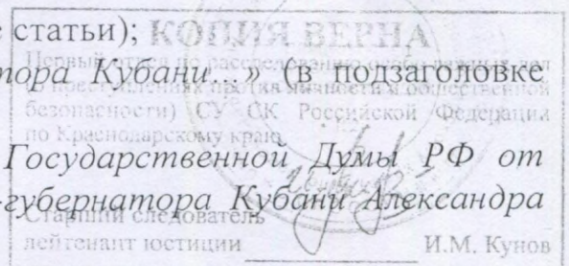 статьи);
КОПИЯ ВЕРНА
Первый отдел по расследованию особо важных дел
тора Кубани...» (в подзаголовке
(о преступлениях против личности и общественной
безопасности) СУ СК Российской Федерации
по Краснодарскому краю
Государственной Думы РФ от
-губернатора Кубани Александра
Старший следователь
лейтенант юстиции И.М. Кунов